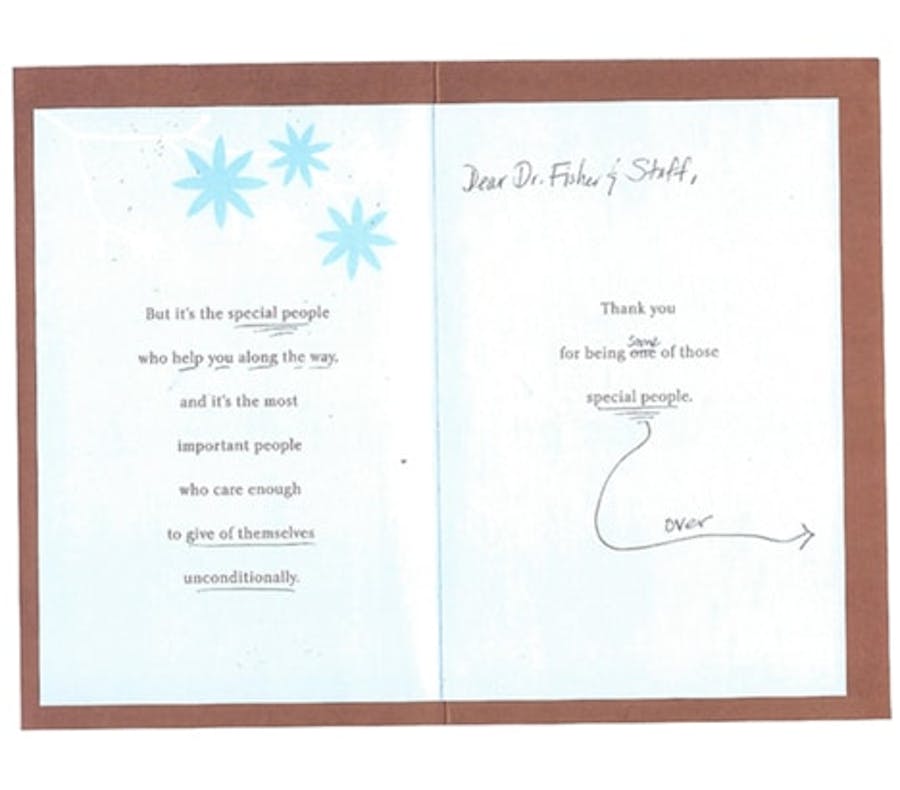 But it's the special people
who help you along the way,
and it's the most
important people
who care enough
to give of themselves
unconditionally.
Dear Dr. Fisher & Staff,
Thank you
some
for being one of those
special people.
over